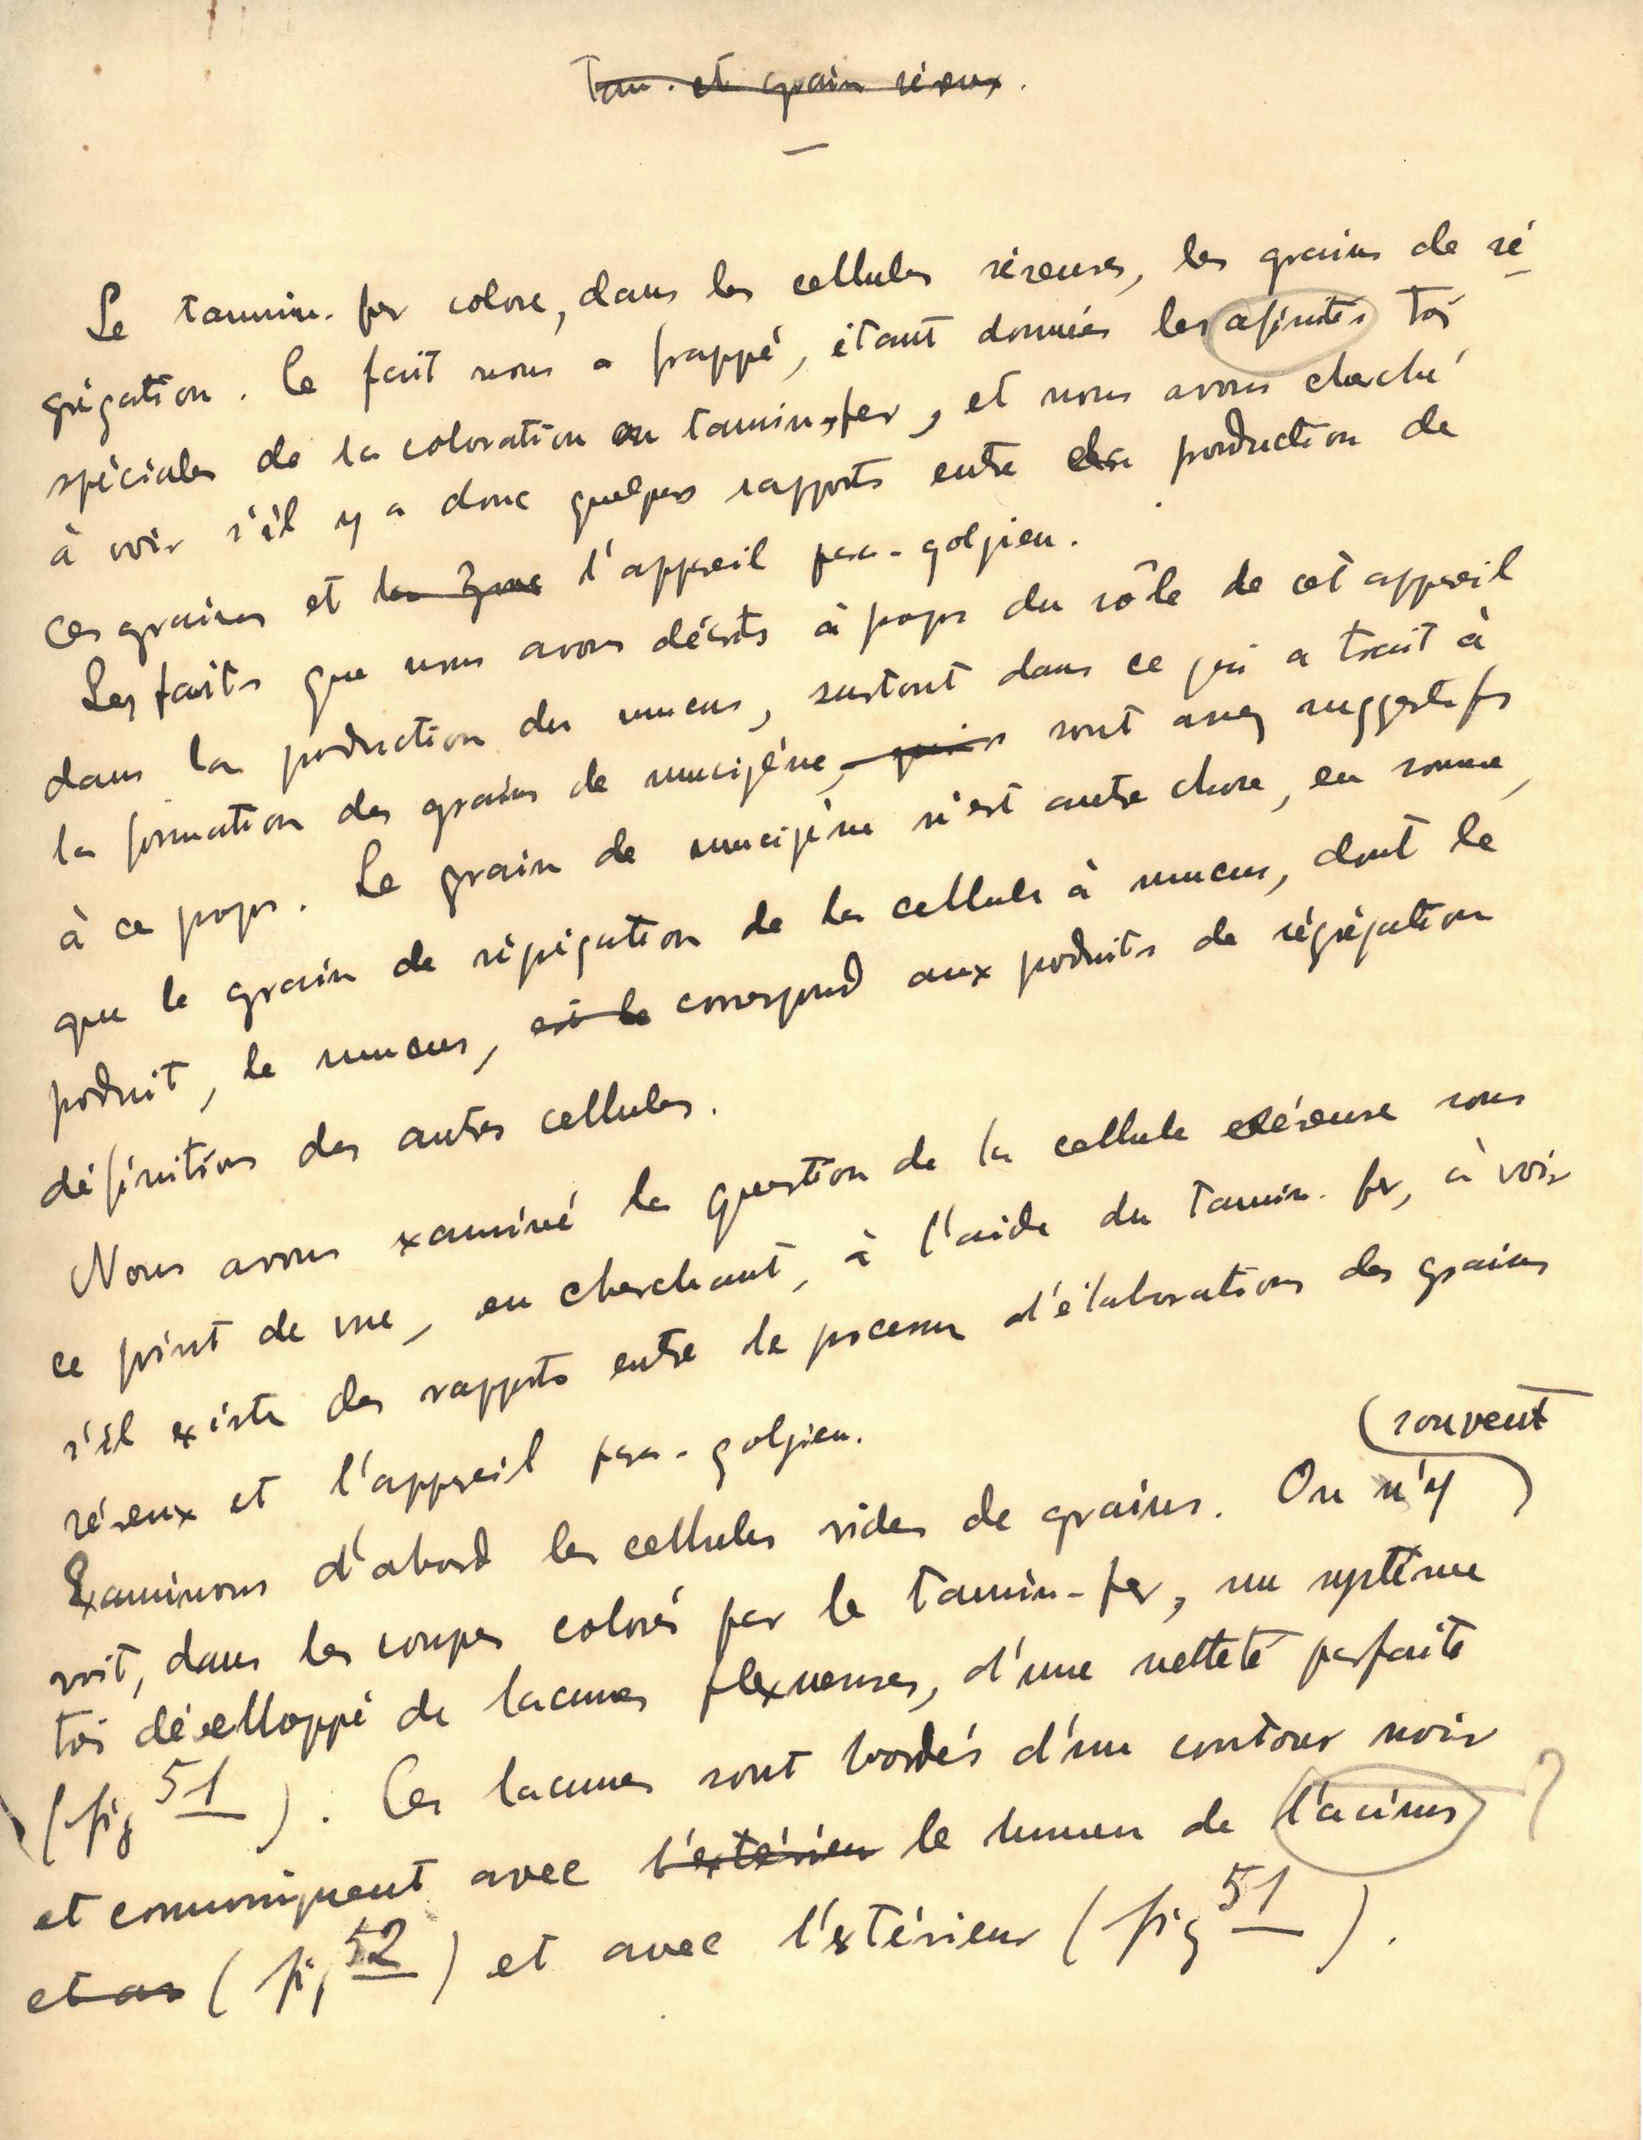 Tan. et grain séreux.
Le tannin-fer colore, dans les cellules séreuses, les grains de sé
grégation. Ce fait nous a frappé, étant données les afinités très
spéciales de la coloration au tannin-fer, et nous avons cherché
à voir s'il y a donc quelques rapports entre la production de
ces grains et la zone l'appareil para-golgien.
Les faits que nous avons décrits à propos du rôle de cet appareil
dans la production du mucus, surtout dans ce qui a trait à
la formation des grains de mucigène, sont assez suggestifs
à ce propos. Le grain de mucigène n'est autre chose, en somme,
que le grain de ségrégation de la cellule à mucus, dont le
produit, le mucus, correspond aux produits de ségrégation
définitive des autres cellules.
Nous avons examiné la question de la cellule séreuse sous
ce point de vue, en cherchant, à l'aide du tannin-fer, à voir
s'il existe des rapports entre le processus d'élaboration des grains
séreux et l'appareil para-golgien.
souvent
Examinons d'abord les cellules vides de grains. On n'y
voit, dans les coupes colorés par le tannin-fer, un système
très développé de lacunes flexueuses, d'une netteté parfaite
(fig 51). Ces lacunes sont bordés d'un contour noir
et comuniquent avec l'extérieur le lumen de l'acinus ?
et as (fig 52) et avec l'extérieur (fig 51).